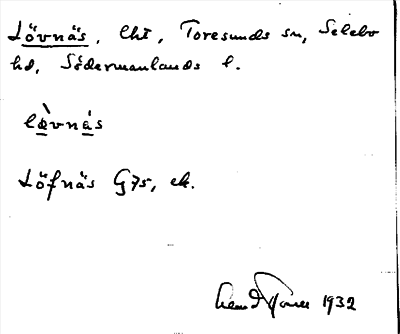 Lövnäs, lht, Toresunds sn, Selebo
hd, Södermanlands l.
lævnás
Löfnäs G75, ek.
1932